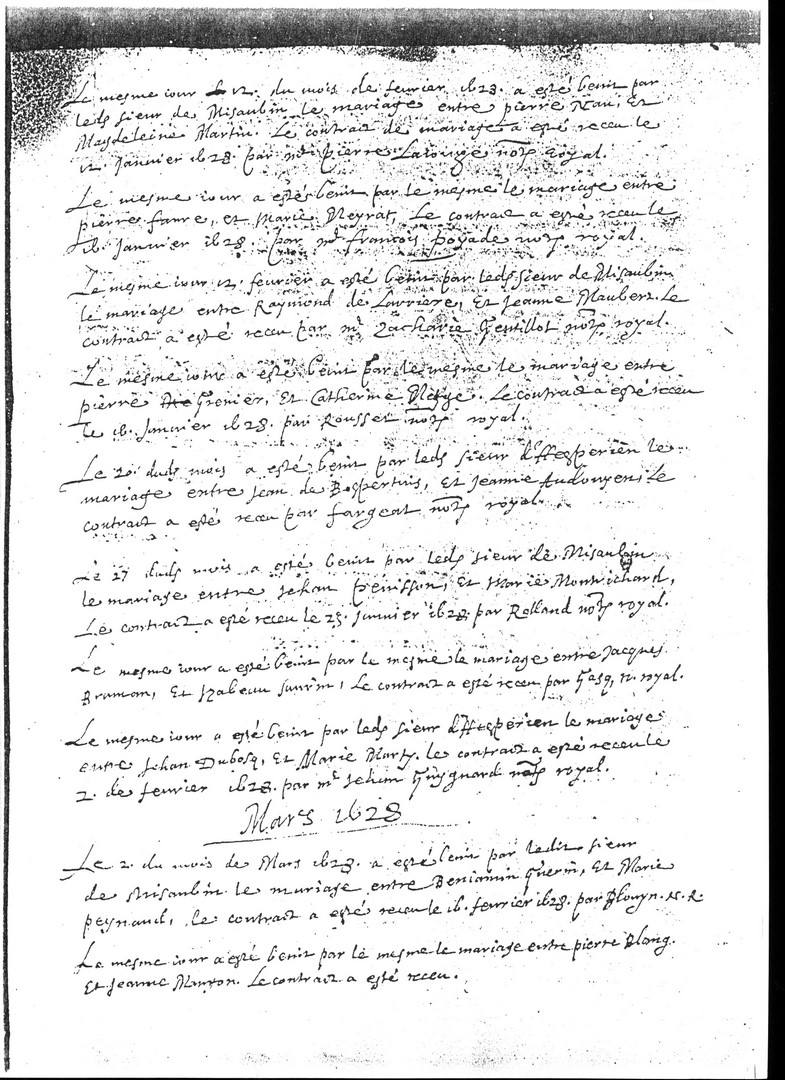 Le mesme iour 12. du mois de fevrier 1628. a esté benit par
leds sieur de Misaubin le mariage entre pierre Nau, Et
Magdeleine Martin. Le contrait de mariage a esté receu le
12. Janvier 1628. par mr pierre Larouge nots royal.
Le mesme iour a esté benit par le mesme le mariage entre
pierre faure, et Marie Neyrat, Le contrait a esté receu le
16. Janvier 1628. par mr francois poyade nots royal.
Le mesme iour 12. fevrier a esté benit par leds sieur de Misaubin
le mariage entre Raymond de Larriere, Et Jeanne Maubert. Le
contrait a esté receu par mr Zacharie Gentillot nots royal.
Le mesme iour a esté benit par le mesme le mariage entre
pierre Grenier, Et Catherine. Le contrait a esté receu
le 16. Janvier 1628. par Rousset nots royal.
Le 20. duds mois a esté benit par leds sieur d'Hesperien le
mariage entre Jean de Bospertuis, Et Jeanne Audouyen, Le
contrait a esté receu par fargeat nots royal.
Le 27 duds mois a esté benit par leds sieur de Misaubin
le mariage entre Jehan Penisson, Et Marie Montrichard,
Le contrait a esté receu le 25. Janvier 1628. par Rolland nots royal.
Le mesme iour a esté benit par le mesme le mariage entre Jacques
Braman, Et Izabeau Saurin, Le contrait a esté receu par Gasq, n. royal.
Le mesme iour a esté benit par leds sieur d'Hesperien le mariage
entre Jehan Dubosq, Et Marie Marty. le contrait a esté receu le
2. de fevrier 1628. par mr Jehan Guygnard nots royal.
Mars 1628
Le 2. du mois de Mars 1628. a esté benit par ledit sieur
de Misaubin le mariage entre Benjamin Guerin, Et Marie
peynaud, le contrait a esté receu le 16. fevrier 1628. par Blouyn. N. R.
Le mesme iour a esté benit par le mesme le mariage entre pierre Blang.
Et Jeanne Manron. Le contrait a esté receu.